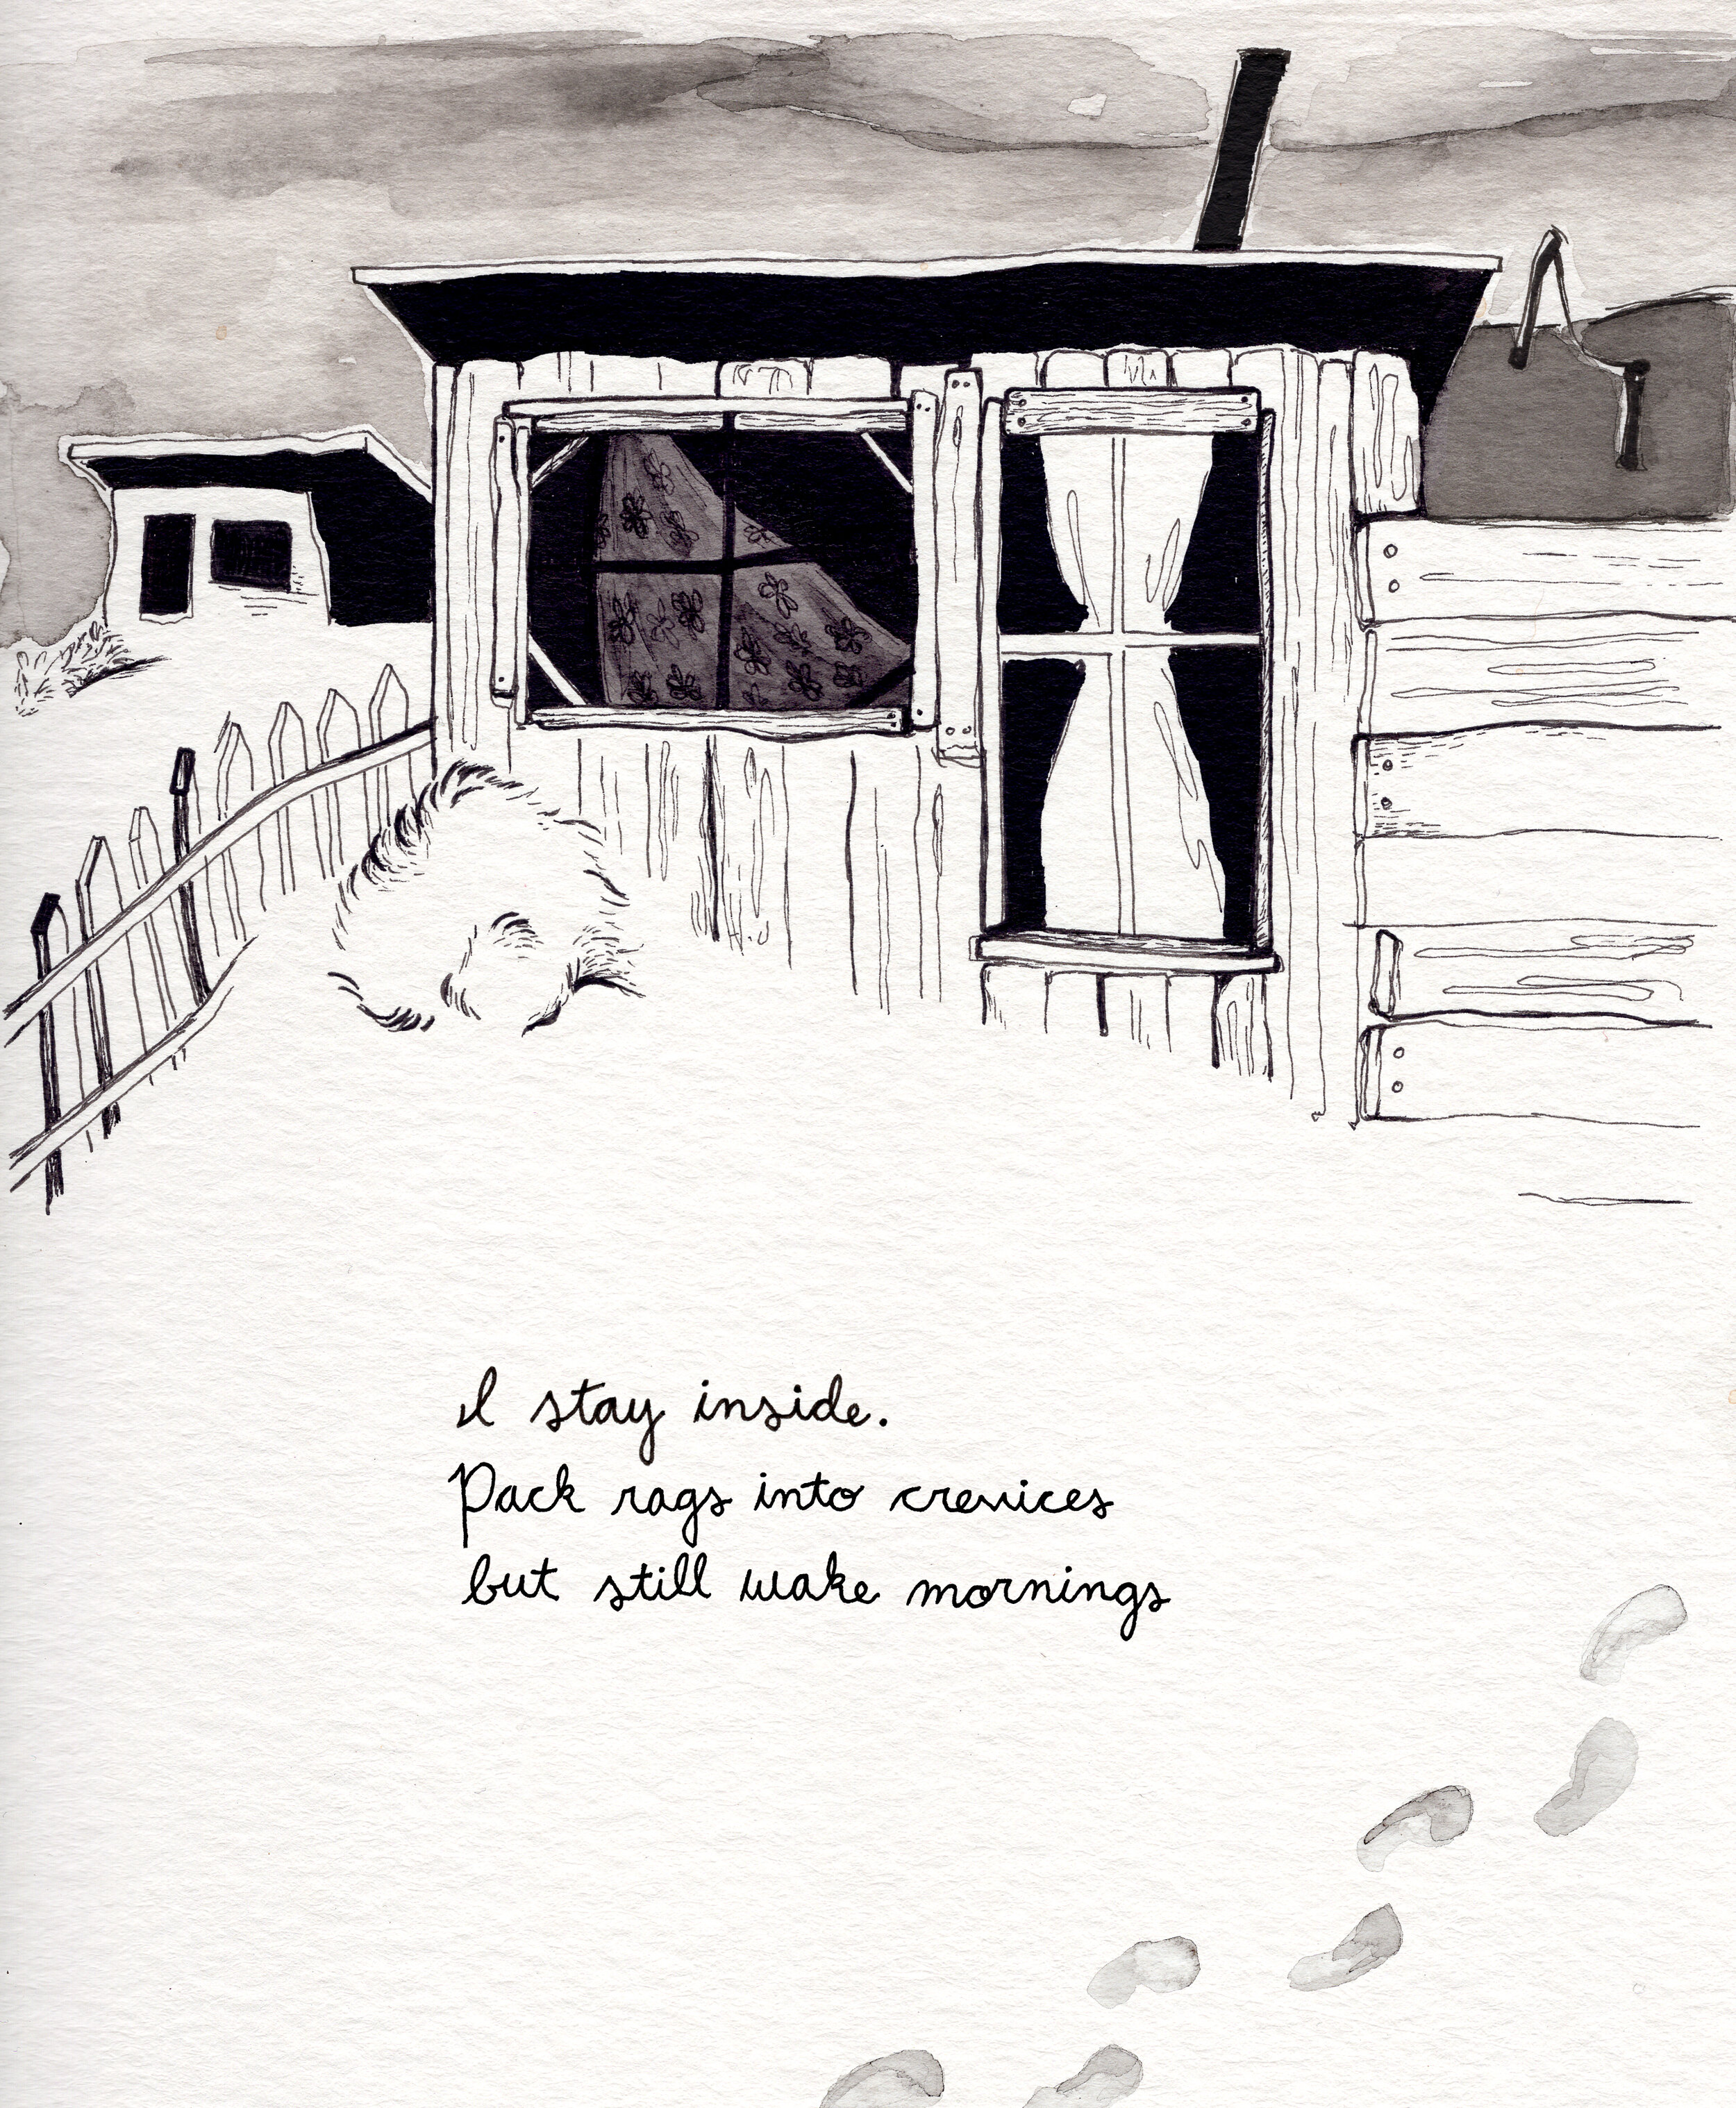 I stay inside.
Pack rags into crevices
but still wake mornings